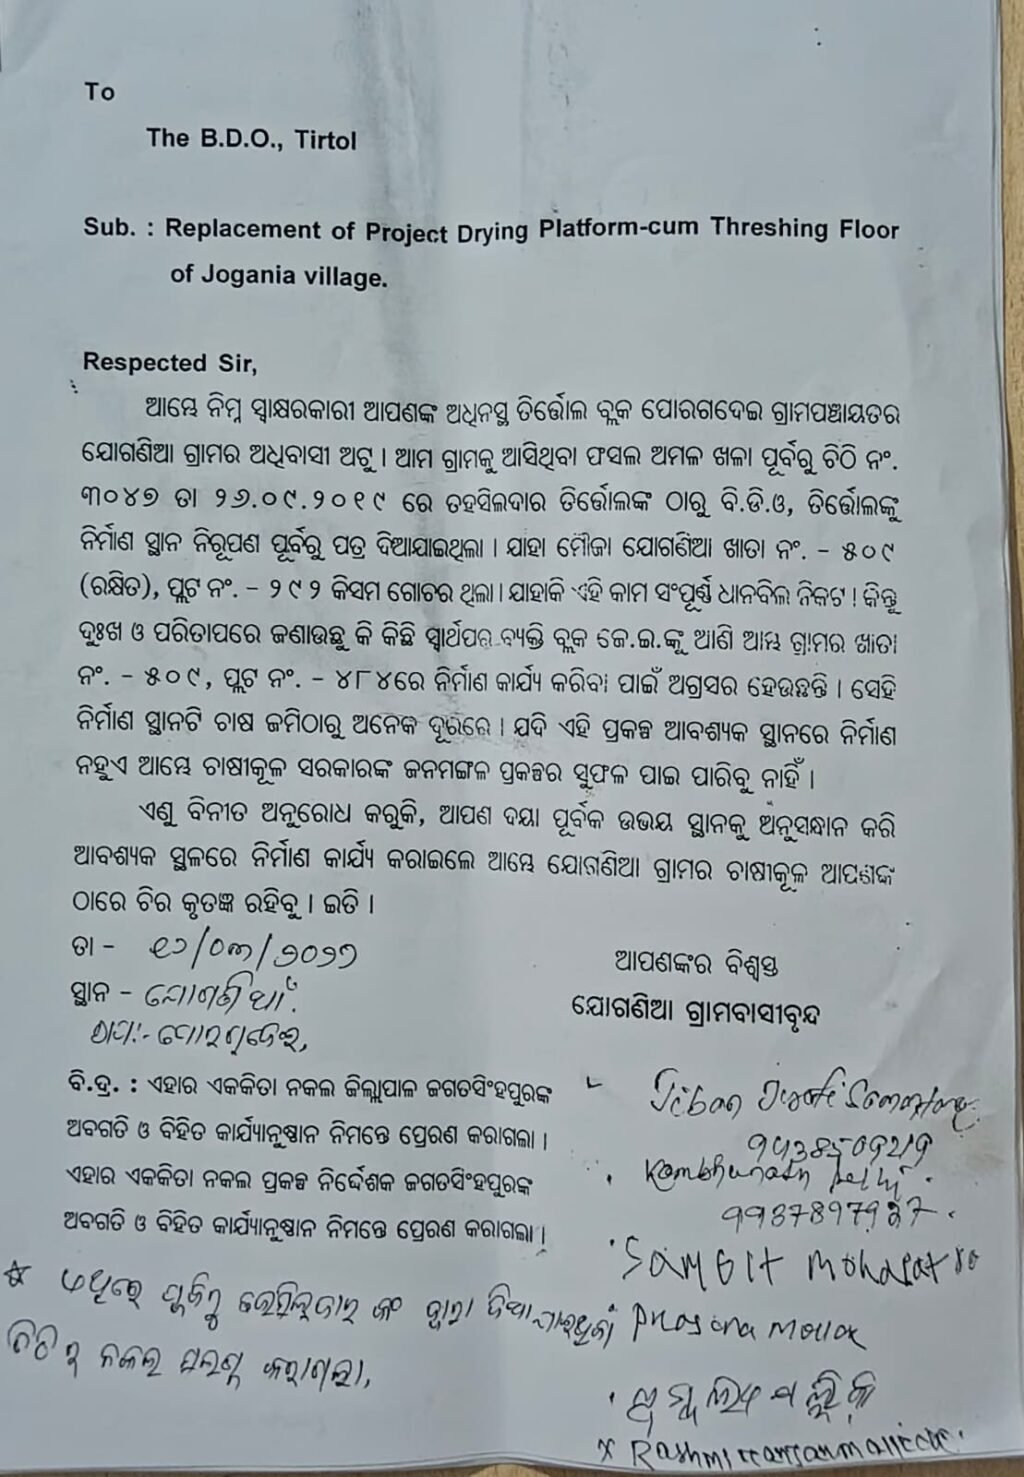 To
The B.D.O., Tirtol
Sub. : Replacement of Project Drying Platform-cum Threshing Floor
of Jogania village.
Respected Sir,
ଆମ୍ଭେ ନିମ୍ନ ସ୍ୱାକ୍ଷରକାରୀ ଆପଣଙ୍କ ଅଧିନସ୍ଥ ତିର୍ତ୍ତୋଲ ବ୍ଲକ ପୋରଗଦେଇ ଗ୍ରାମପଞ୍ଚାୟତର
ଯୋଗଣିଆ ଗ୍ରାମର ଅଧିବାସୀ ଅଟୁ । ଆମ ଗ୍ରାମକୁ ଆସିଥିବା ଫସଲ ଅମଳ ଖଳା ପୂର୍ବରୁ ଚିଠି ନଂ.
୩୦୪୭ ତା ୨୬.୦୯.୨୦୧୯ ରେ ତହସିଲଦାର ତିର୍ତ୍ତୋଲଙ୍କ ଠାରୁ ବି.ଡି.ଓ, ତିର୍ତ୍ତୋଲଙ୍କୁ
ନିର୍ମାଣ ସ୍ଥାନ ନିରୂପଣ ପୂର୍ବରୁ ପତ୍ର ଦିଆଯାଇଥିଲା । ଯାହା ମୌଜା ଯୋଗଣିଆ ଖାତା ନଂ. - ୫୦୯
(ରକ୍ଷିତ), ପ୍ଲଟ ନଂ. - ୨୯୨ କିସମ ଗୋଚର ଥିଲା । ଯାହାକି ଏହି କାମ ସଂପୂର୍ଣ୍ଣ ଧାନବିଲ ନିକଟ ! କିନ୍ତୁ
ଦୁଃଖ ଓ ପରିତାପରେ ଜଣାଉଛୁ କି କିଛି ସ୍ୱାର୍ଥପର ବ୍ୟକ୍ତି ବ୍ଲକ ଜେ.ଇ.ଙ୍କୁ ଆଣି ଆମ୍ଭ ଗ୍ରାମର ଖାତା
ନଂ. - ୫୦୯, ପ୍ଲଟ ନଂ. - ୪୮୪ରେ ନିର୍ମାଣ କାର୍ଯ୍ୟ କରିବା ପାଇଁ ଅଗ୍ରସର ହେଉଛନ୍ତି । ସେହି
ନିର୍ମାଣ ସ୍ଥାନଟି ଚାଷ ଜମିଠାରୁ ଅନେକ ଦୂରରେ । ଯଦି ଏହି ପ୍ରକଳ୍ପ ଆବଶ୍ୟକ ସ୍ଥାନରେ ନିର୍ମାଣ
ନହୁଏ ଆମ୍ଭେ ଚାଷୀକୂଳ ସରକାରଙ୍କ ଜନମଙ୍ଗଳ ପ୍ରକଳ୍ପର ସୁଫଳ ପାଇ ପାରିବୁ ନାହିଁ ।
ଏଣୁ ବିନୀତ ଅନୁରୋଧ କରୁକି, ଆପଣ ଦୟା ପୂର୍ବକ ଉଭୟ ସ୍ଥାନକୁ ଅନୁସନ୍ଧାନ କରି
ଆବଶ୍ୟକ ସ୍ଥଳରେ ନିର୍ମାଣ କାର୍ଯ୍ୟ କରାଇଲେ ଆମ୍ଭେ ଯୋଗଣିଆ ଗ୍ରାମର ଚାଷୀକୂଳ ଆପଣଙ୍କ
ଠାରେ ଚିର କୃତଜ୍ଞ ରହିବୁ । ଇତି ।
ତା -
ସ୍ଥାନ - ଯୋଗଣିଆଁ
ଆପଣଙ୍କର ବିଶ୍ୱସ୍ତ
ଯୋଗଣିଆ ଗ୍ରାମବାସୀବୃନ୍ଦ
ବି.ଦ୍ର. : ଏହାର ଏକକିତା ନକଲ ଜିଲ୍ଲାପାଳ ଜଗତସିଂହପୁରଙ୍କ
ଅବଗତି ଓ ବିହିତ କାର୍ଯ୍ୟାନୁଷ୍ଠାନ ନିମନ୍ତେ ପ୍ରେରଣ କରାଗଲା ।
ଏହାର ଏକକିତା ନକଲ ପ୍ରକଳ୍ପ ନିର୍ଦ୍ଦେଶକ ଜଗତସିଂହପୁରଙ୍କ
ଅବଗତି ଓ ବିହିତ କାର୍ଯ୍ୟାନୁଷ୍ଠାନ ନିମନ୍ତେ ପ୍ରେରଣ କରାଗଲା ।
Jiban Jyoti
Sangit Mohapatro